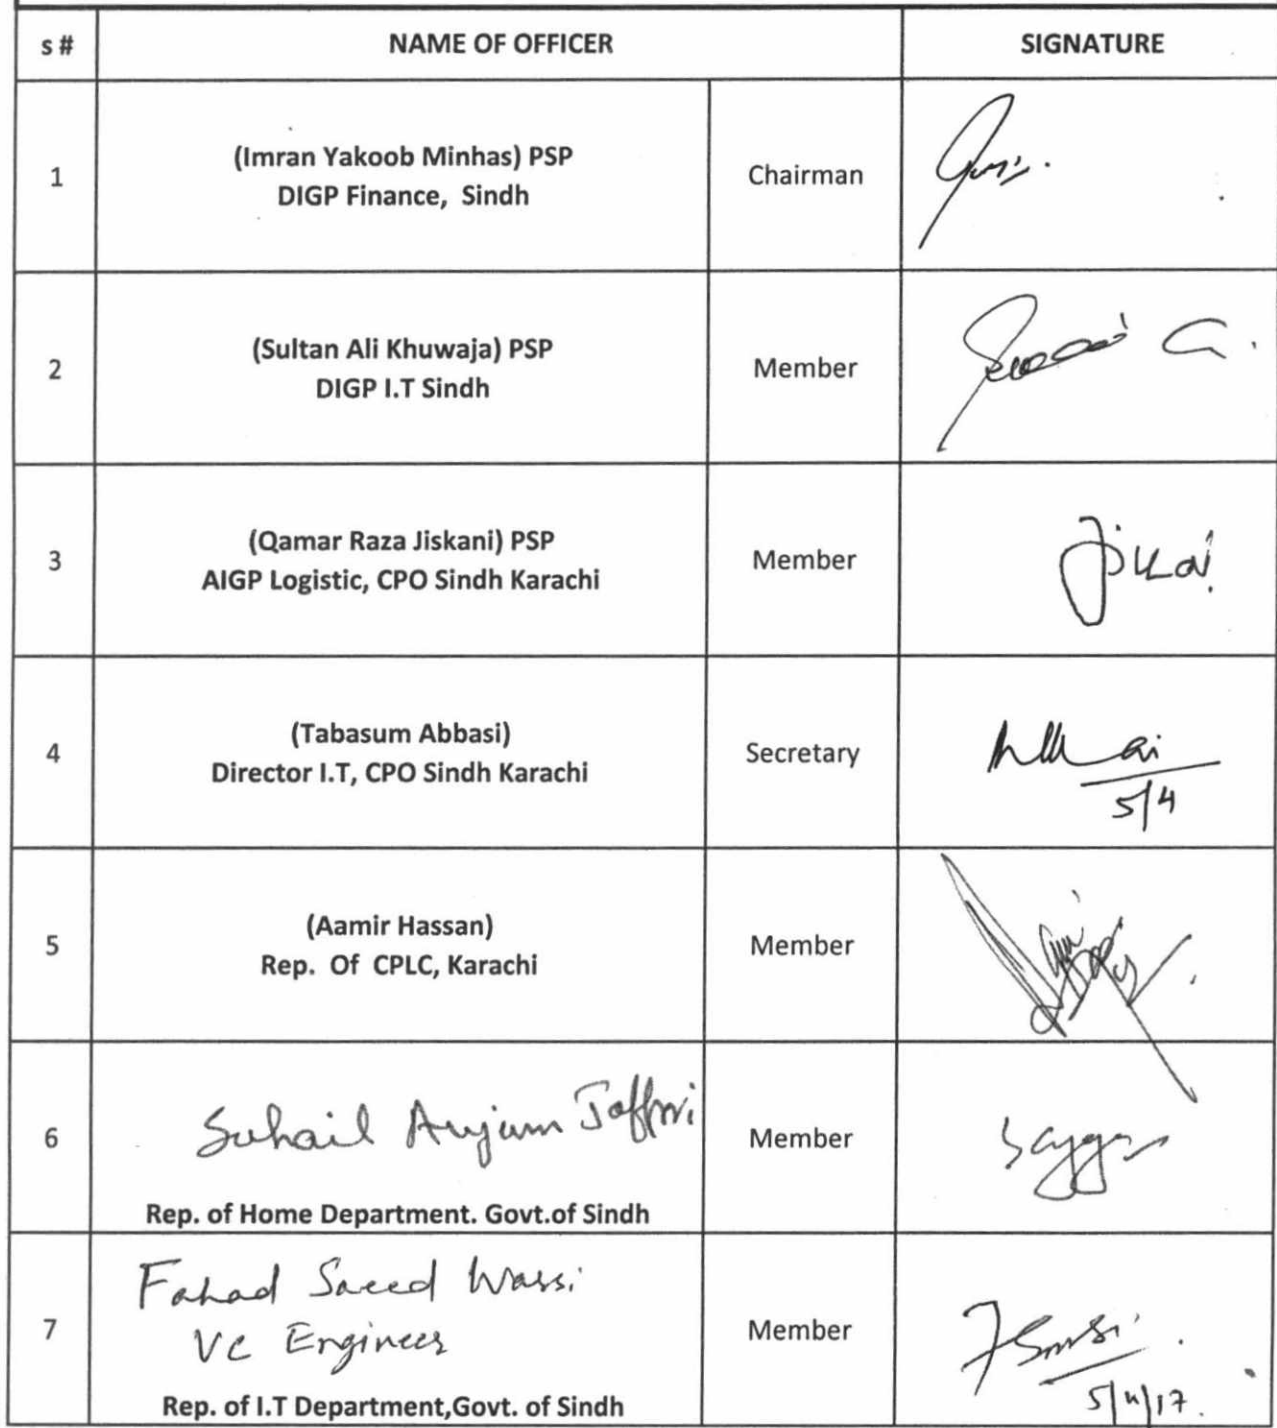 s # NAME OF OFFICER SIGNATURE
1 (Imran Yakoob Minhas) PSP
DIGP Finance, Sindh Chairman
2 (Sultan Ali Khuwaja) PSP
DIGP I.T Sindh Member
3 (Qamar Raza Jiskani) PSP
AIGP Logistic, CPO Sindh Karachi Member
4 (Tabasum Abbasi)
Director I.T, CPO Sindh Karachi Secretary
5/4
5 (Aamir Hassan)
Rep. Of CPLC, Karachi Member
6 Suhail Anjum Jaffri Member
Rep. of Home Department. Govt.of Sindh
7 Fahad Saeed Wassi
VC Engineer Member
Rep. of I.T Department,Govt. of Sindh
5/4/17.